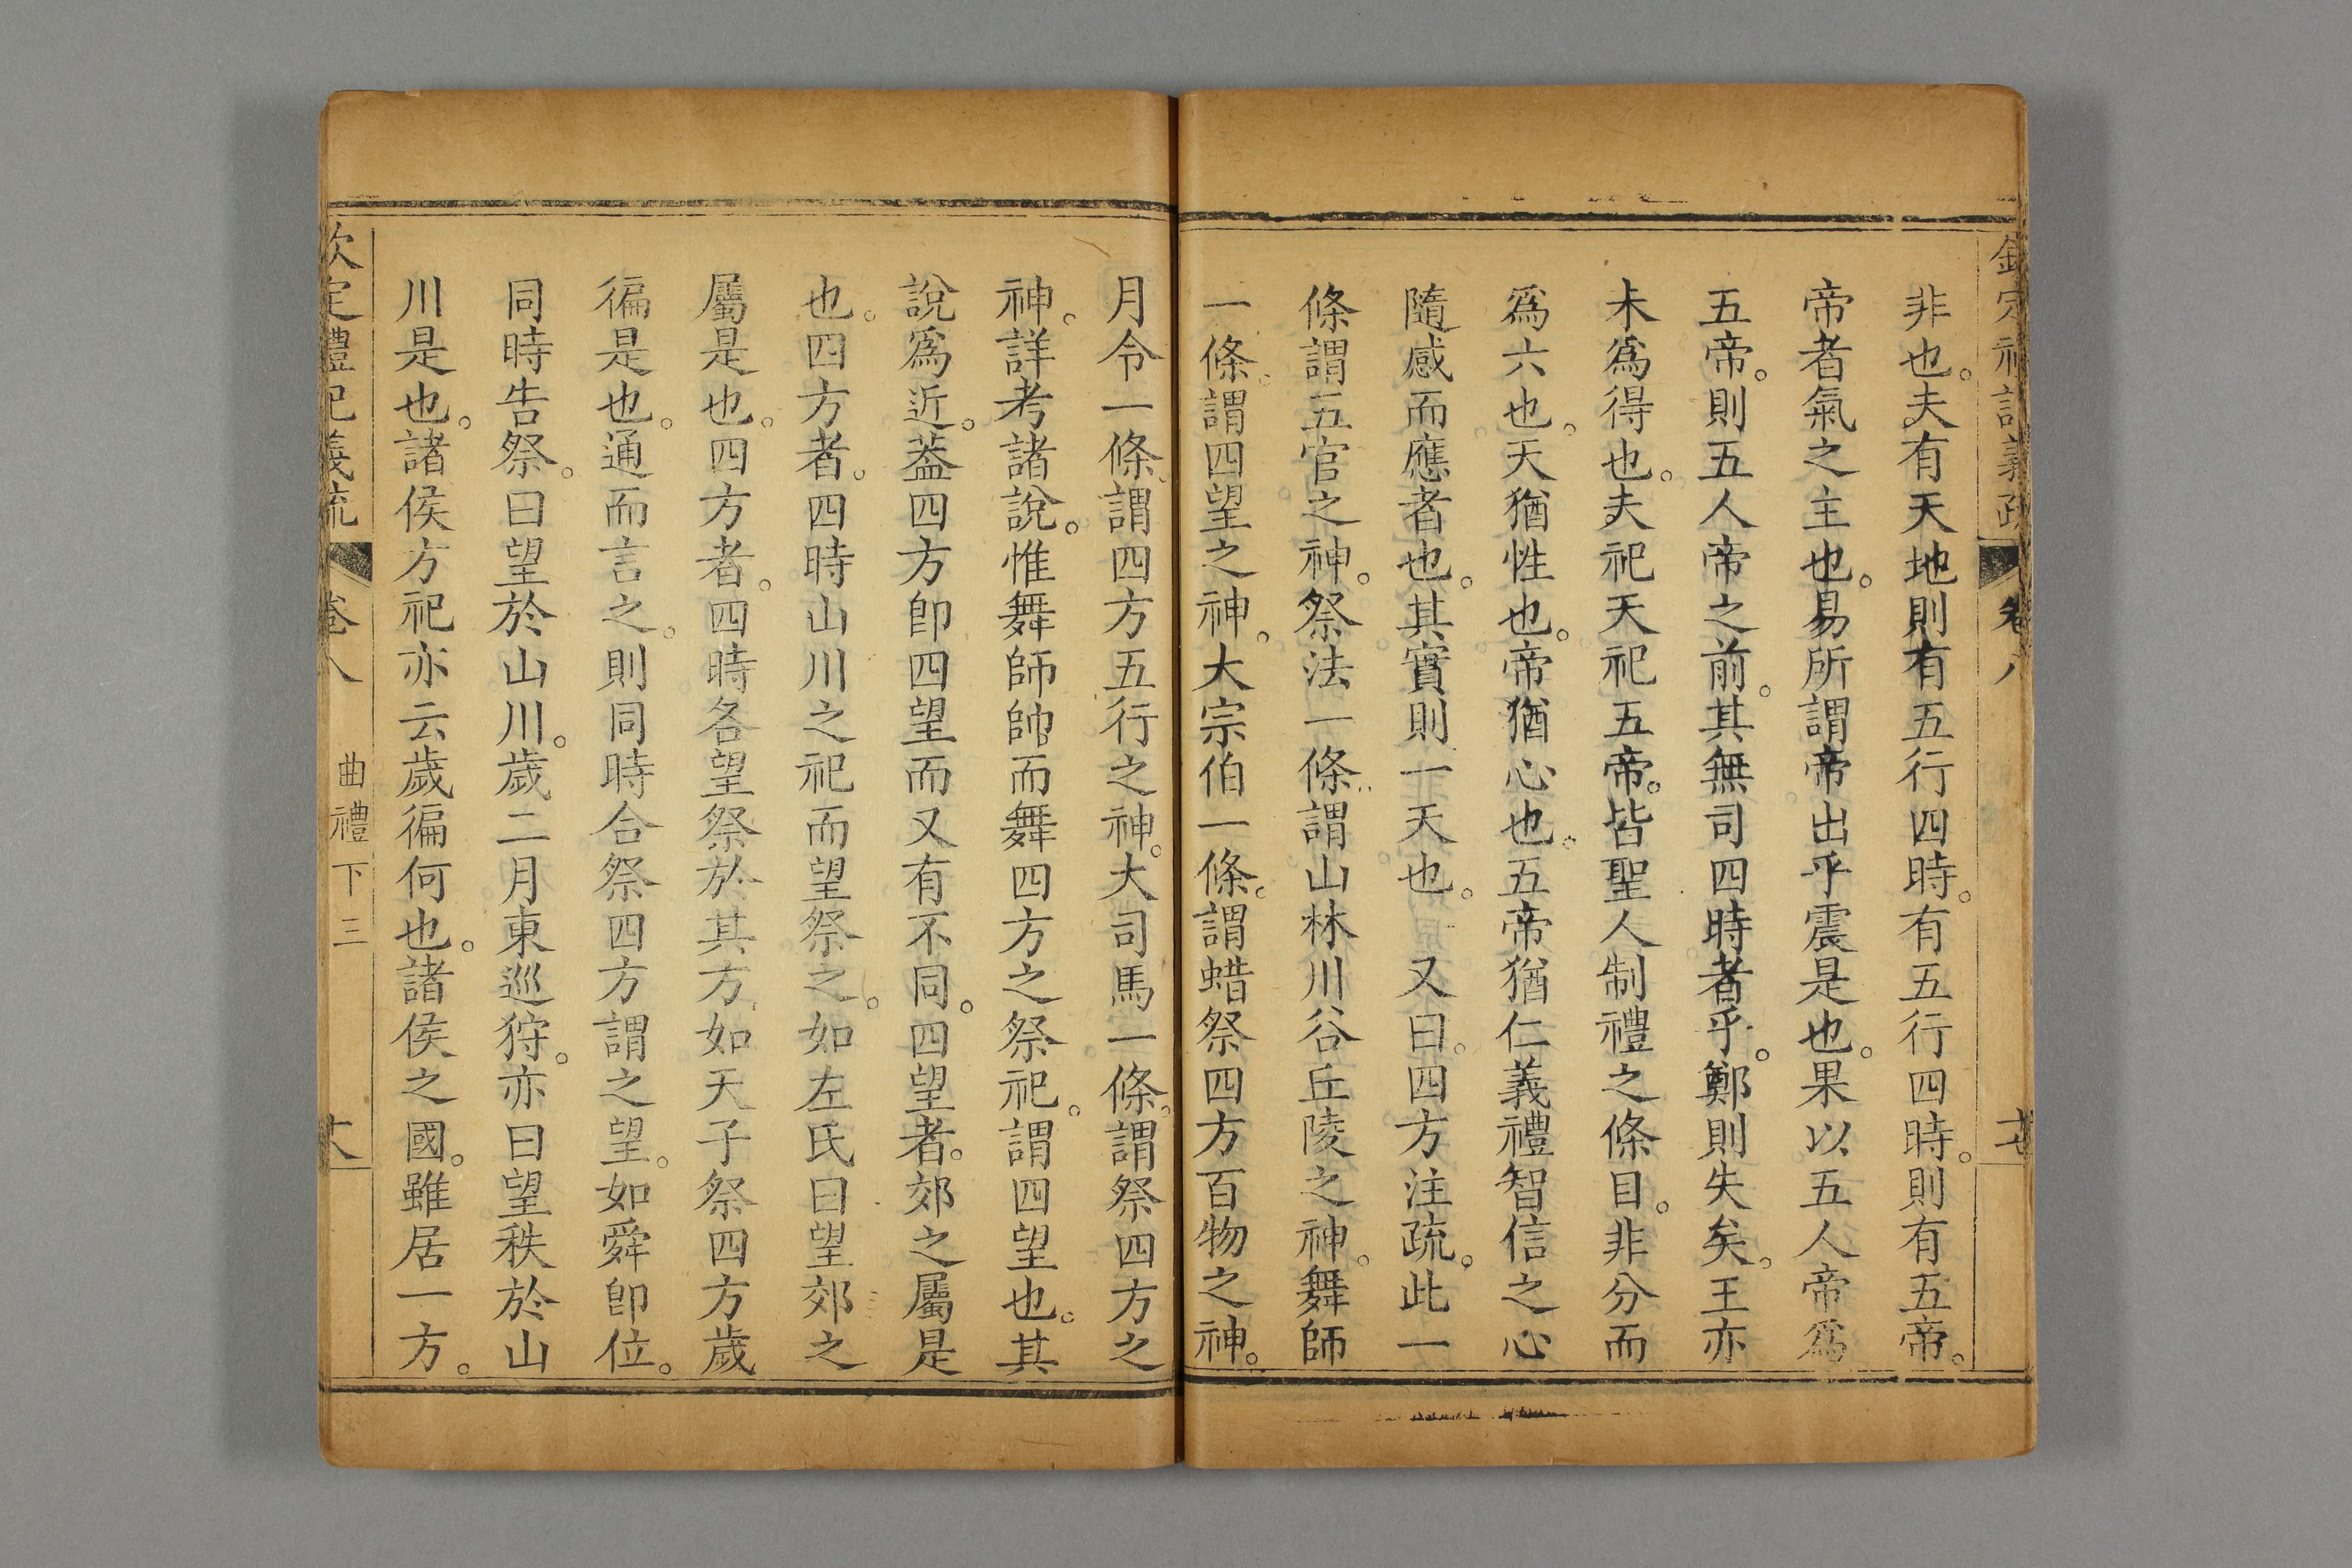 欽定禮記義疏 卷八
非也。夫有天地則有五行四時。有五行四時。則有五帝。
帝者氣之主也。易所謂帝出乎震是也。果以五人帝爲
五帝。則五人帝之前。其無司四時者乎。鄭則失矣。王亦
未爲得也。夫祀天祀五帝。皆聖人制禮之條目。非分而
爲六也。天猶性也。帝猶心也。五帝猶仁義禮智信之心
隨感而應者也。其實則一天也。 又曰。四方注疏。此一
條謂五官之神。祭法一條。謂山林川谷丘陵之神。舞師
一條。謂四望之神。大宗伯一條。謂蜡祭四方百物之神。
月令一條。謂四方五行之神。大司馬一條。謂祭四方之
神。詳考諸說。惟舞師帥而舞四方之祭祀。謂四望也。其
說爲近。葢四方卽四望而又有不同。四望者。郊之屬是
也。四方者。四時山川之祀而望祭之。如左氏曰望郊之
屬是也。四方者。四時各望祭於其方。如天子祭四方歲
徧是也。通而言之。則同時合祭四方謂之望。如舜卽位。
同時告祭。曰望於山川。歲二月東巡狩。亦曰望秩於山
川是也。諸侯方祀亦云歲徧何也。諸侯之國。雖居一方。
欽定禮記義疏 卷八 曲禮下三